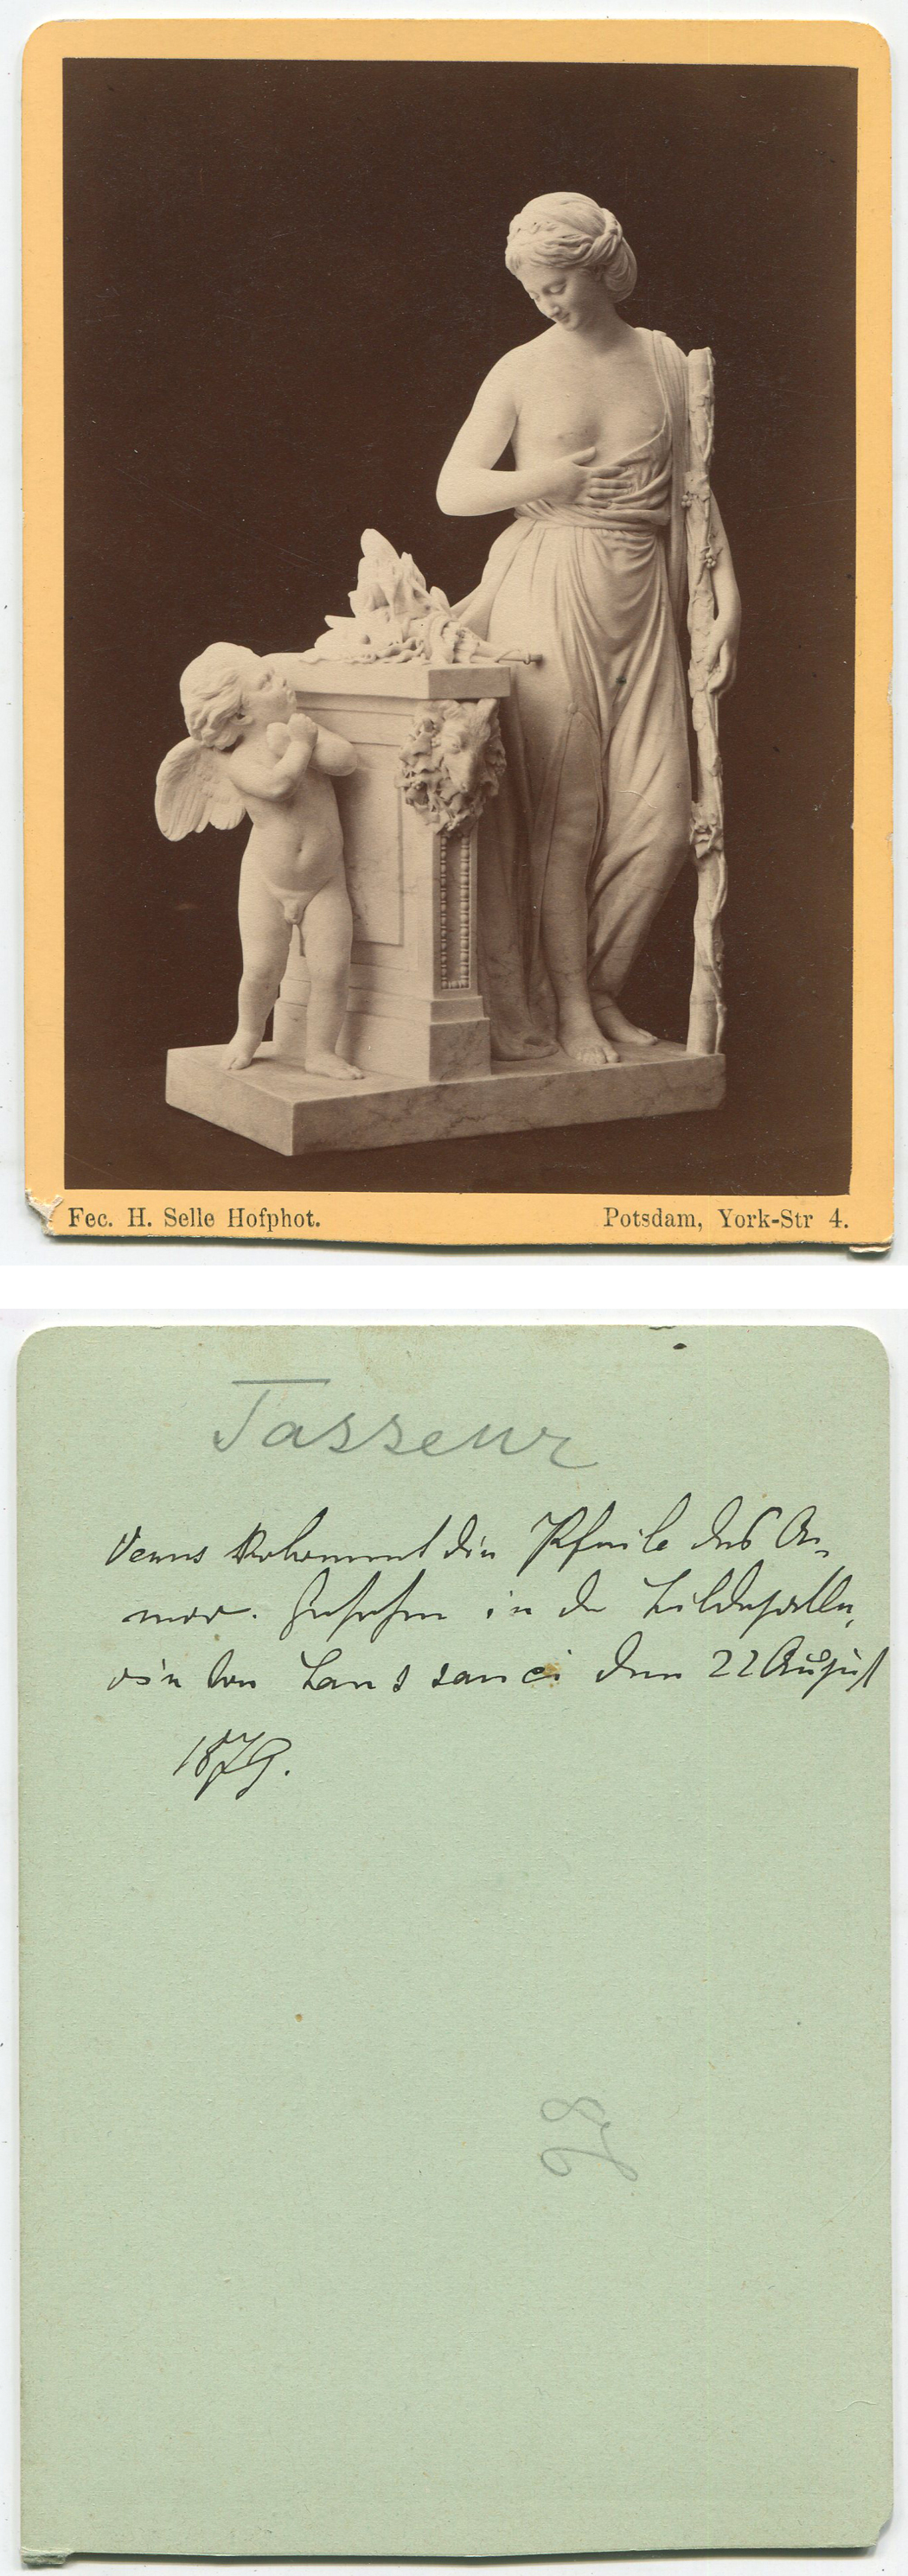 Fec. H. Selle Hofphot. Potsdam, York-Str 4.
Tasseur
Venus die Pfeile des A-
mor. Gesehen in der Bildergalle-
rie von Sans souci den 22 August
1879.